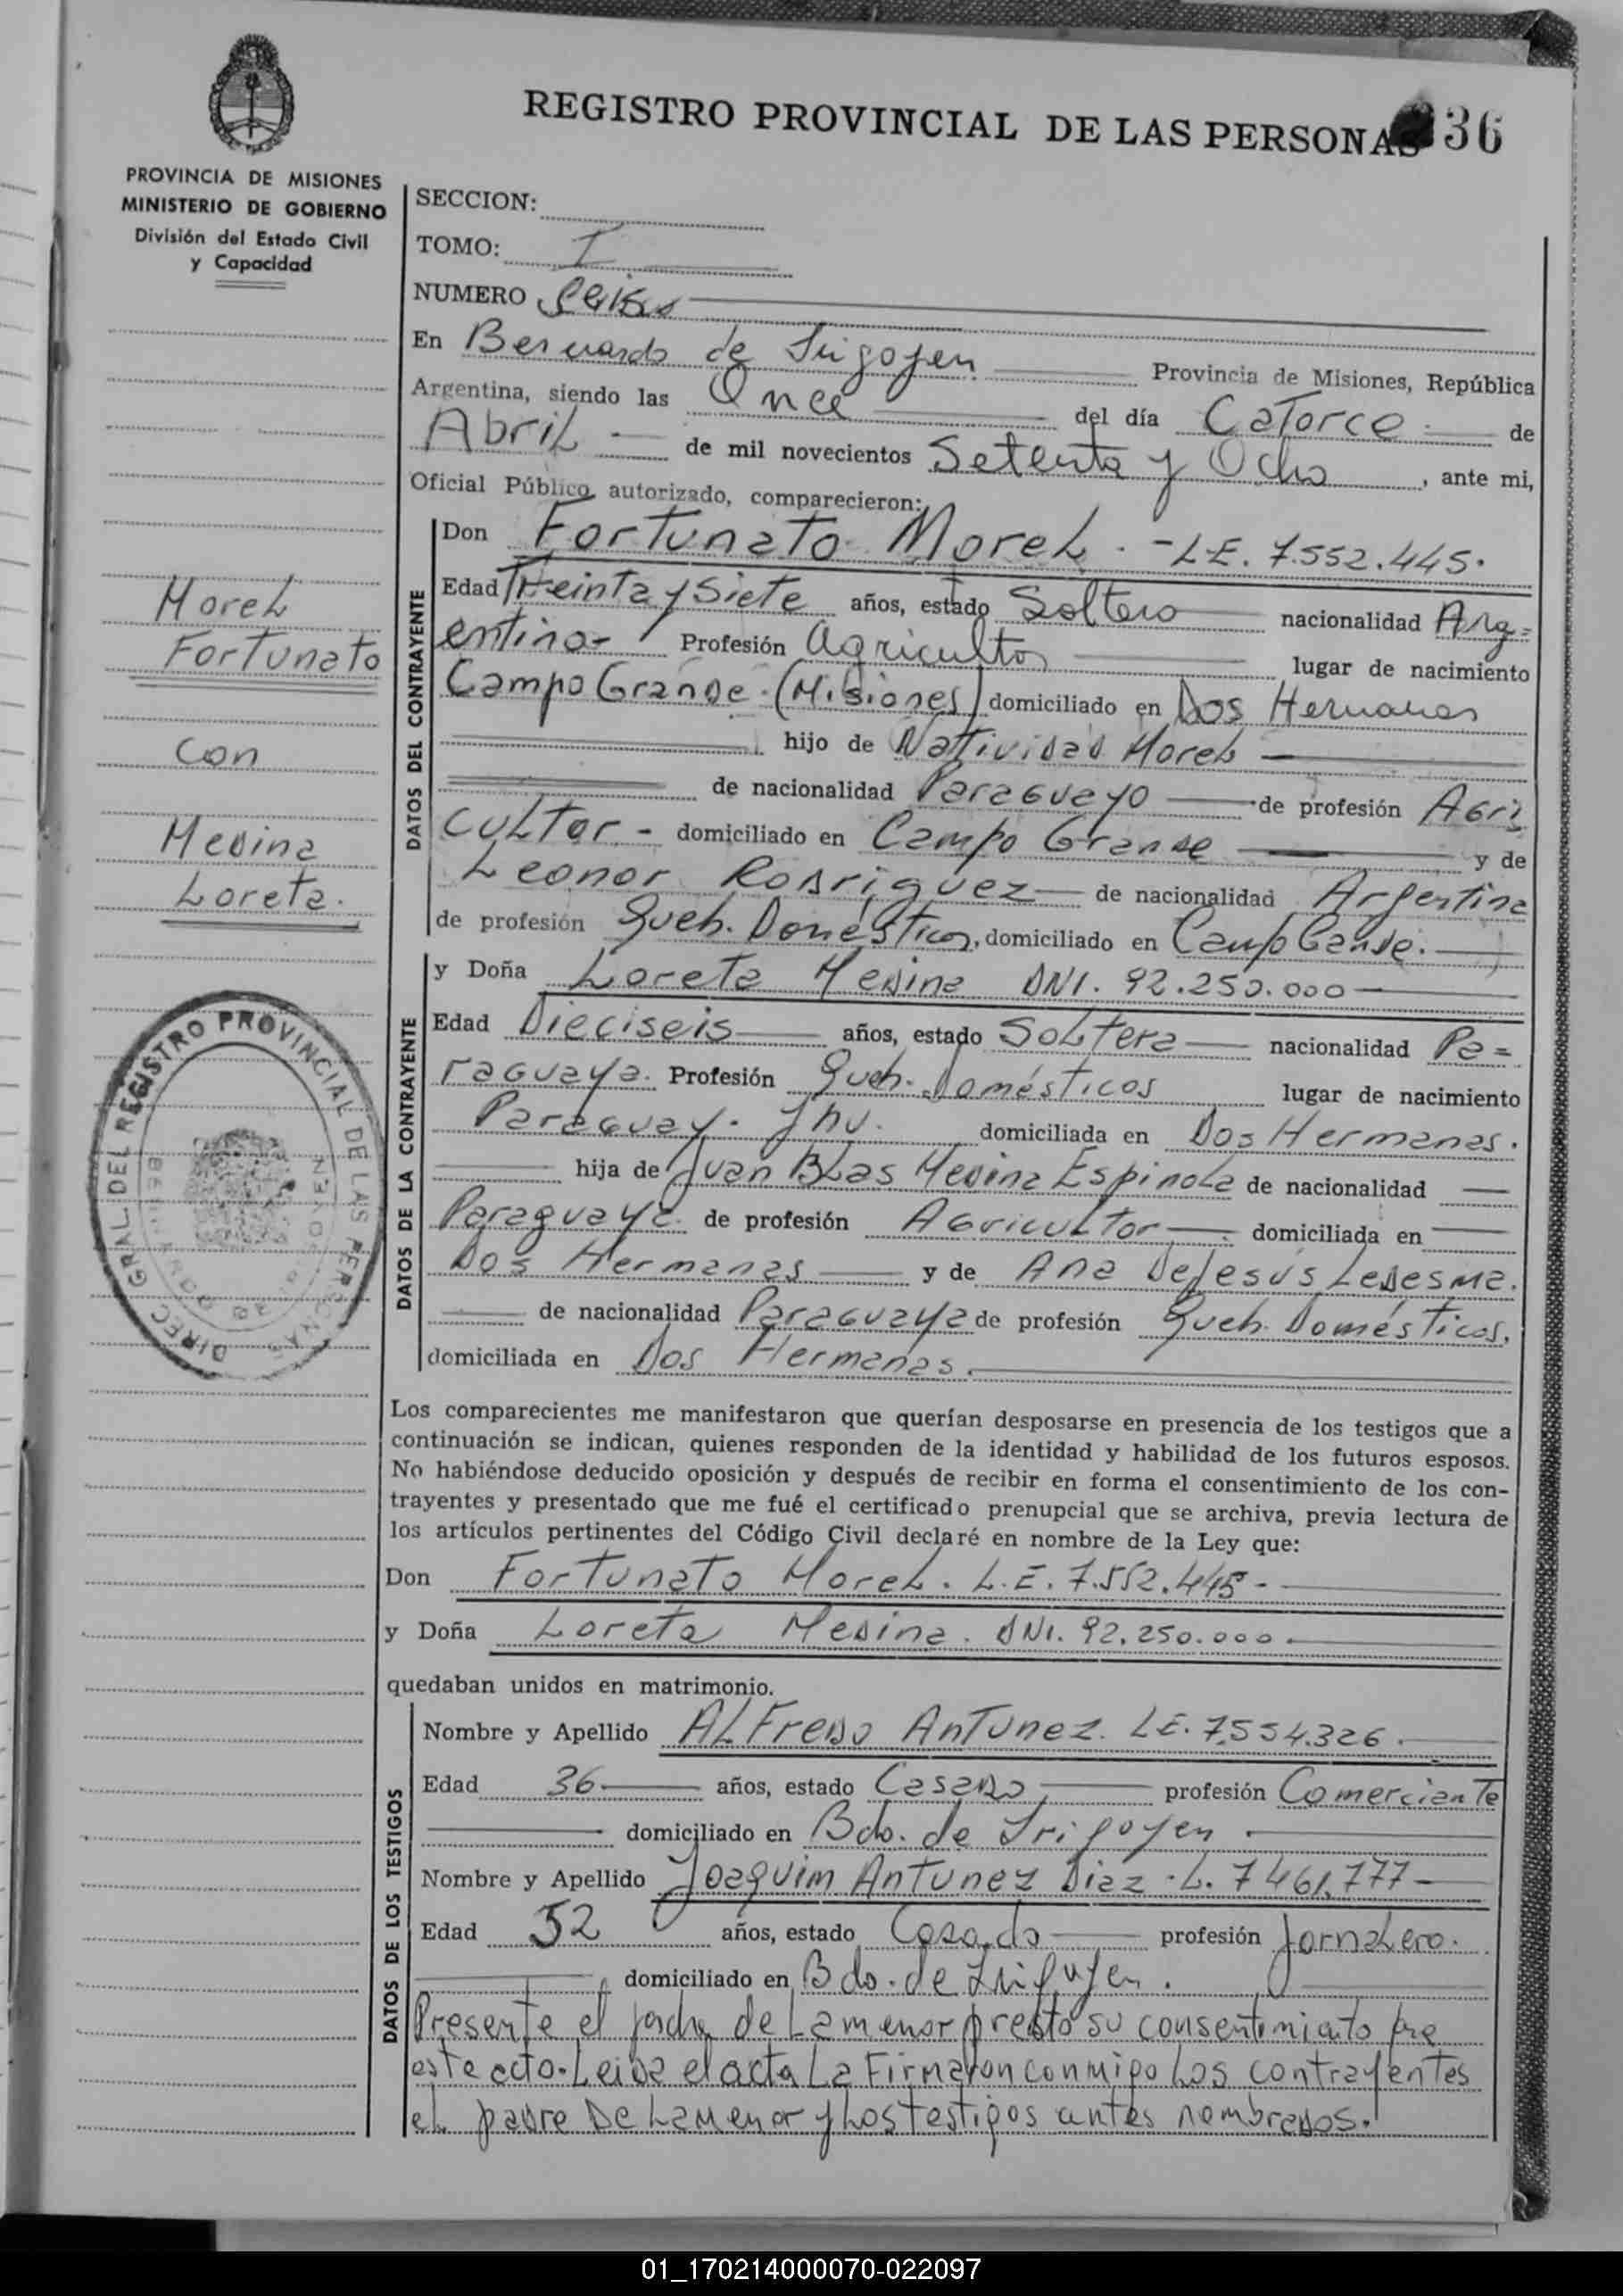 REGISTRO PROVINCIAL DE LAS PERSONAS 36
PROVINCIA DE MISIONES
MINISTERIO DE GOBIERNO
División del Estado Civil
y Capacidad
SECCION:
TOMO: I
NUMERO
En Bernardo de Irigoyen Provincia de Misiones, República
Argentina, siendo las Once del día Catorce de
Abril de mil novecientos Setenta y Ocho, ante mi,
Oficial Público autorizado, comparecieron:
Morel
Fortunato
con
Medina
Loreta.
DATOS DEL CONTRAYENTE
Don Fortunato Morel. - L.E. 7.552.445.
Edad Treinta y Siete años, estado Soltero nacionalidad Arg=
entino- Profesión Agricultor lugar de nacimiento
Campo Grande. (Misiones) domiciliado en Dos Hermanas
hijo de Natividad Morel
de nacionalidad Paraguayo de profesión Agri
cultor. - domiciliado en Campo Grande y de
Leonor Rodriguez de nacionalidad Argentina
de profesión Queh. Domésticos, domiciliado en Campo Grande.
DATOS DE LA CONTRAYENTE
y Doña Loreta Medina DNI. 92.250.000
Edad Dieciseis años, estado Soltera nacionalidad Pa=
raguaya. Profesión Queh. Domésticos lugar de nacimiento
Paraguay. Yhu. domiciliada en Dos Hermanas.
hija de Juan Blas Medina Espinola de nacionalidad
Paraguaya. de profesión Agricultor. domiciliada en
Dos Hermanas y de Ana DeJesús Ledesma.
de nacionalidad Paraguaya de profesión Queh. Domésticos.
domiciliada en Dos Hermanas.
DIREC. GRAL. DEL REGISTRO PROVINCIAL DE LAS PERSONAS
Los comparecientes me manifestaron que querían desposarse en presencia de los testigos que a
continuación se indican, quienes responden de la identidad y habilidad de los futuros esposos.
No habiéndose deducido oposición y después de recibir en forma el consentimiento de los con-
trayentes y presentado que me fué el certificado prenupcial que se archiva, previa lectura de
los artículos pertinentes del Código Civil declaré en nombre de la Ley que:
Don Fortunato Morel. L.E. 7.552.445-
y Doña Loreta Medina. DNI. 92.250.000.
quedaban unidos en matrimonio.
DATOS DE LOS TESTIGOS
Nombre y Apellido Alfredo Antunez. L.E. 7.554.326.
Edad 36 años, estado Casado profesión Comerciante
domiciliado en Bdo. de Irigoyen.
Nombre y Apellido Joaquim Antunez Diaz. L. 7461.777-
Edad 52 años, estado Casado profesión Jornalero.
domiciliado en Bdo. de Irigoyen.
Presente el padre de la menor presto su consentimiento pra
este acto. Leida el acta la Firmaron conmigo los contrayentes
el padre de la menor y los testigos antes nombrados.
01_170214000070-022097